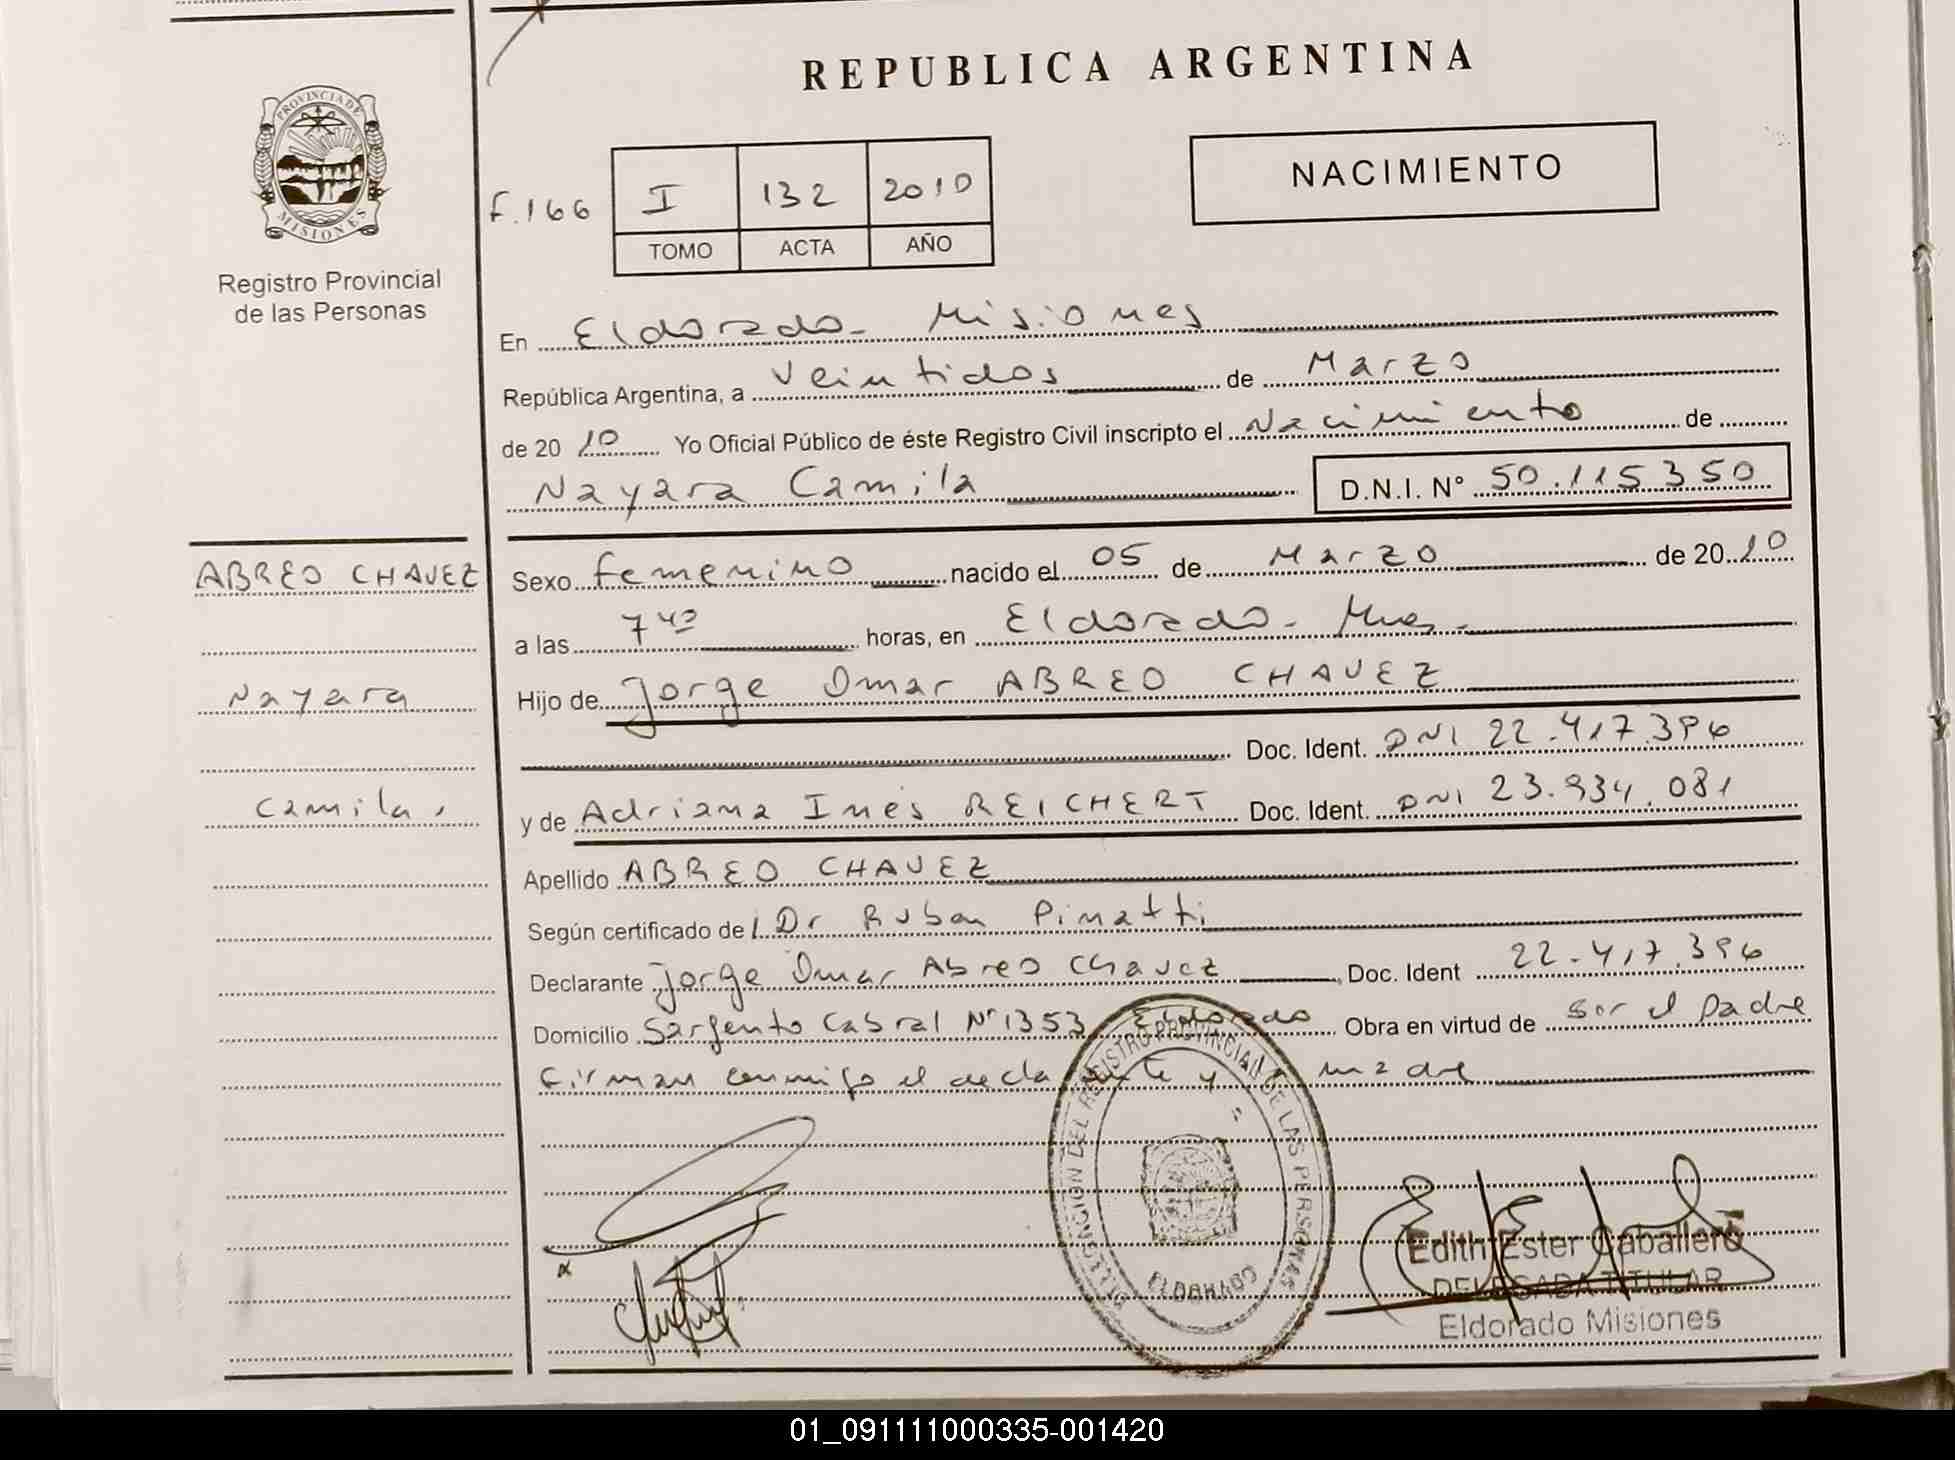 REPUBLICA ARGENTINA
PROVINCIA DE
MISIONES
Registro Provincial
de las Personas
NACIMIENTO
F.166 I 132 2010
TOMO ACTA AÑO
En Eldorado - Misiones
República Argentina, a Veintidos de Marzo
de 2010 Yo Oficial Público de éste Registro Civil inscripto el Nacimiento de
Nayara Camila D.N.I. N° 50.115.350
ABREO CHAVEZ
Nayara
Camila.
Sexo femenino nacido el 05 de Marzo de 2010
a las 7 40 horas, en Eldorado - Mnes -
Hijo de Jorge Omar ABREO CHAVEZ
Doc. Ident. DNI 22.417.396
y de Adriana Inés REICHERT Doc. Ident. DNI 23.934.081
Apellido ABREO CHAVEZ
Según certificado de Dr Ruben Pinatti
Declarante Jorge Omar Abreo Chavez Doc. Ident 22.417.396
Domicilio Sargento Cabral N° 1353 Eldorado Obra en virtud de ser el padre
Firman conmigo el declarante y la madre
DELEGACION DEL REGISTRO PROVINCIAL DE LAS PERSONAS
ELDORADO
Edith Ester Caballero
DELEGADA TITULAR
Eldorado Misiones
01_091111000335-001420